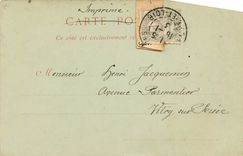 Imprimé
CARTE PO
Ce côté est exclusivement
Monsieur Henri Jacquemin
Avenue Parmentier
Vitry sur Seine